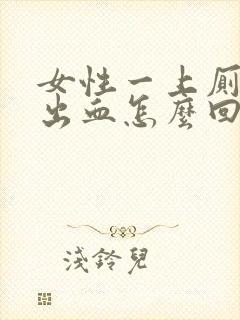 女性一上厠
出血怎麼回
淺鈴兒